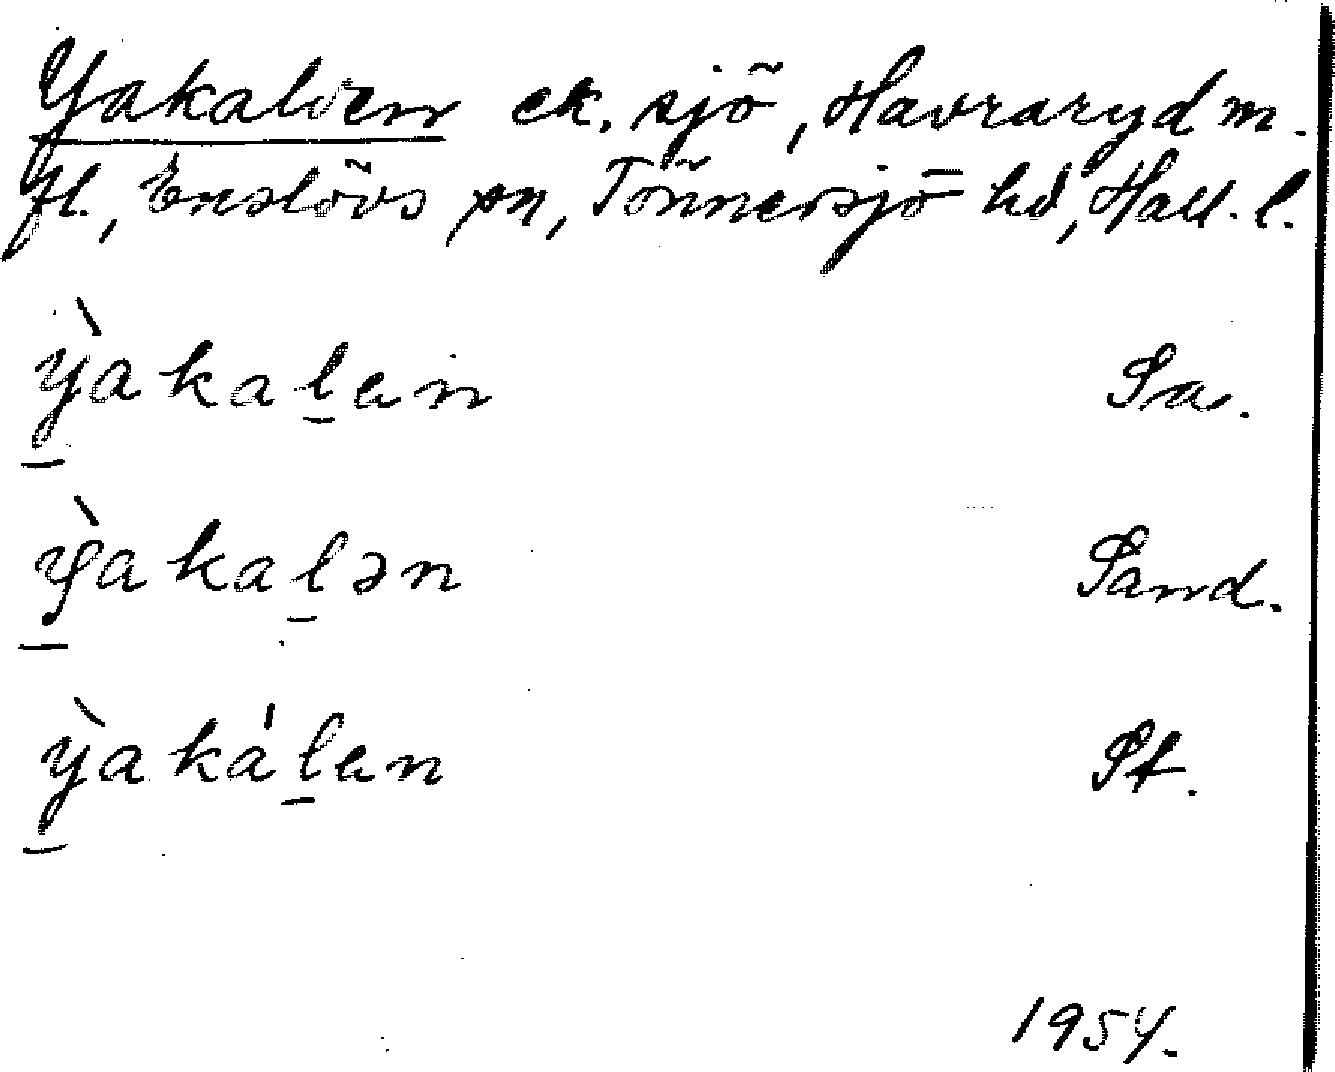 Yakalven ek. sjö, Havraryd m.
fl., Enslövs sn, Tönnersjö hd, Hall. l.
ỳ̱akaḻen Sa.
ỳ̱akaḻən Sand.
ỳ̱aka̍ḻen St.
1954.